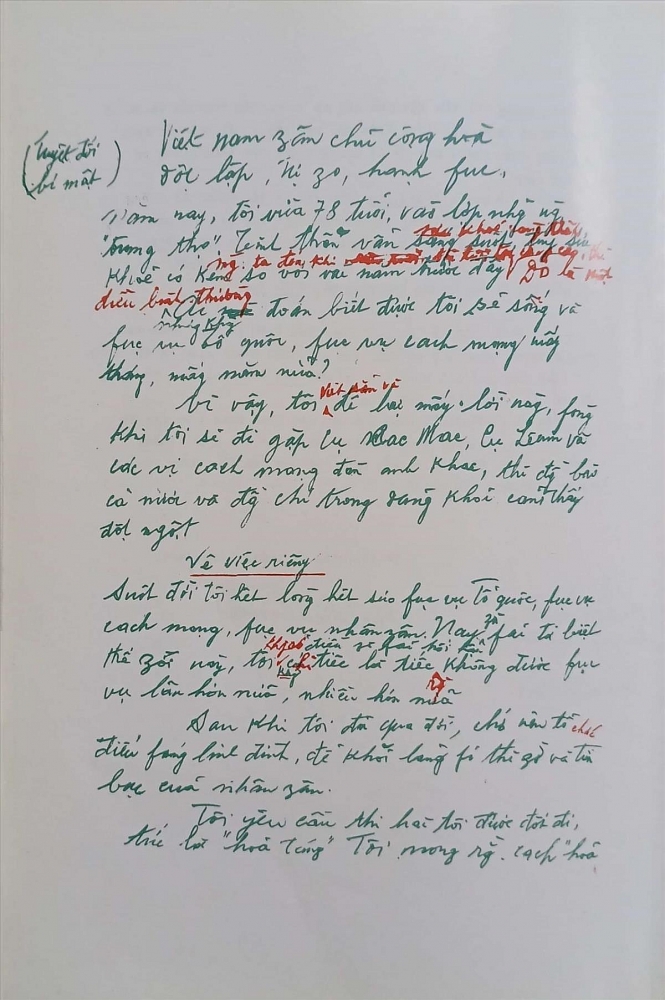 (tuyệt đối
bí mật)
Việt nam zân chủ cộng hoà
độc lập, tự zo, hạnh fúc.
Năm nay, tôi vừa 78 tuổi, vào lớp nhữ ng
"trung thọ". Tinh thần vẫn sáng suốt, tuy sức
khoẻ có kém so với vài năm trước đây. Đó là một
ng. ta đến khi
điều bình thường
Ai mà đoán biết được tôi sẽ sống và
nhưng
fục vụ tổ quốc, fục vụ cách mạng mấy
tháng, mấy năm nữa?
Viết sẵn và
Vì vậy, tôi để lại mấy lời này, fòng
khi tôi sẽ đi gặp cụ Các Mác, cụ Lênin và
các vị cách mạng đàn anh khác, thì đ bào
cả nước và đ chí trong đảng khỏi cảm thấy
đột ngột.
Về việc riêng
Suốt đời tôi hết lòng hết sức fục vụ Tổ quốc, fục vụ
cách mạng, fục vụ nhân zân. Nay zù fải từ biệt
thế zới này, tôi không có điều gì fải hối hận
chỉ tiếc là tiếc không được fục
vụ lâu hơn nữa, nhiều hơn nữa
Sau khi tôi đã qua đời, chớ nên tổ chức
điếu fúng linh đình, để khỏi lãng fí thì zờ và tiền
bạc của nhân zân.
Tôi yêu cầu thi hài tôi được đốt đi,
tức là "hoả táng". Tôi mong rằ. cách "hoả